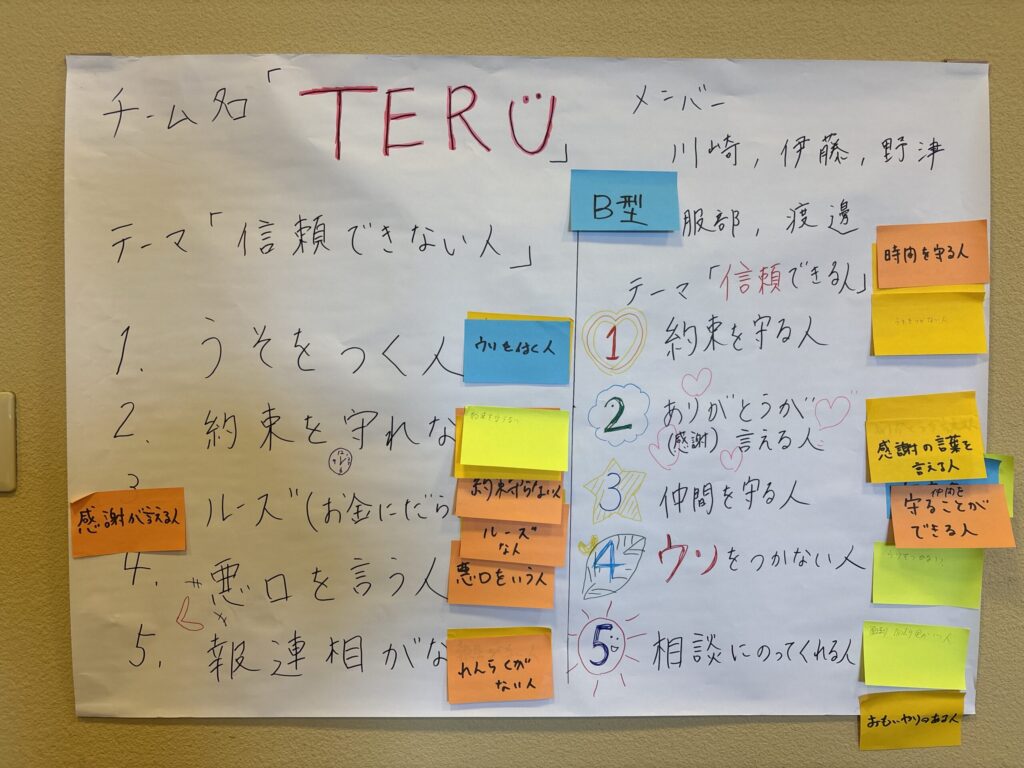 チーム名「TERÜ」
メンバー
川崎, 伊藤, 野津
服部, 渡邊
B型
テーマ「信頼できない人」
1. うそをつく人
ウソをはく人
2. 約束を守れな
約束守らない人
ルーズ(お金にだら
ルーズ
な人
感謝が言える人
4. 悪口を言う人
悪口をいう人
5. 報連相がな
れんらくが
ない人
テーマ「信頼できる人」
時間を守る人
1 約束を守る人
うそをつかない人
2 ありがとうが
(感謝) 言える人
感謝の言葉を
言える人
3 仲間を守る人
仲間を
守ることが
できる人
4 ウソをつかない人
5 相談にのってくれる人
おもいやりのある人